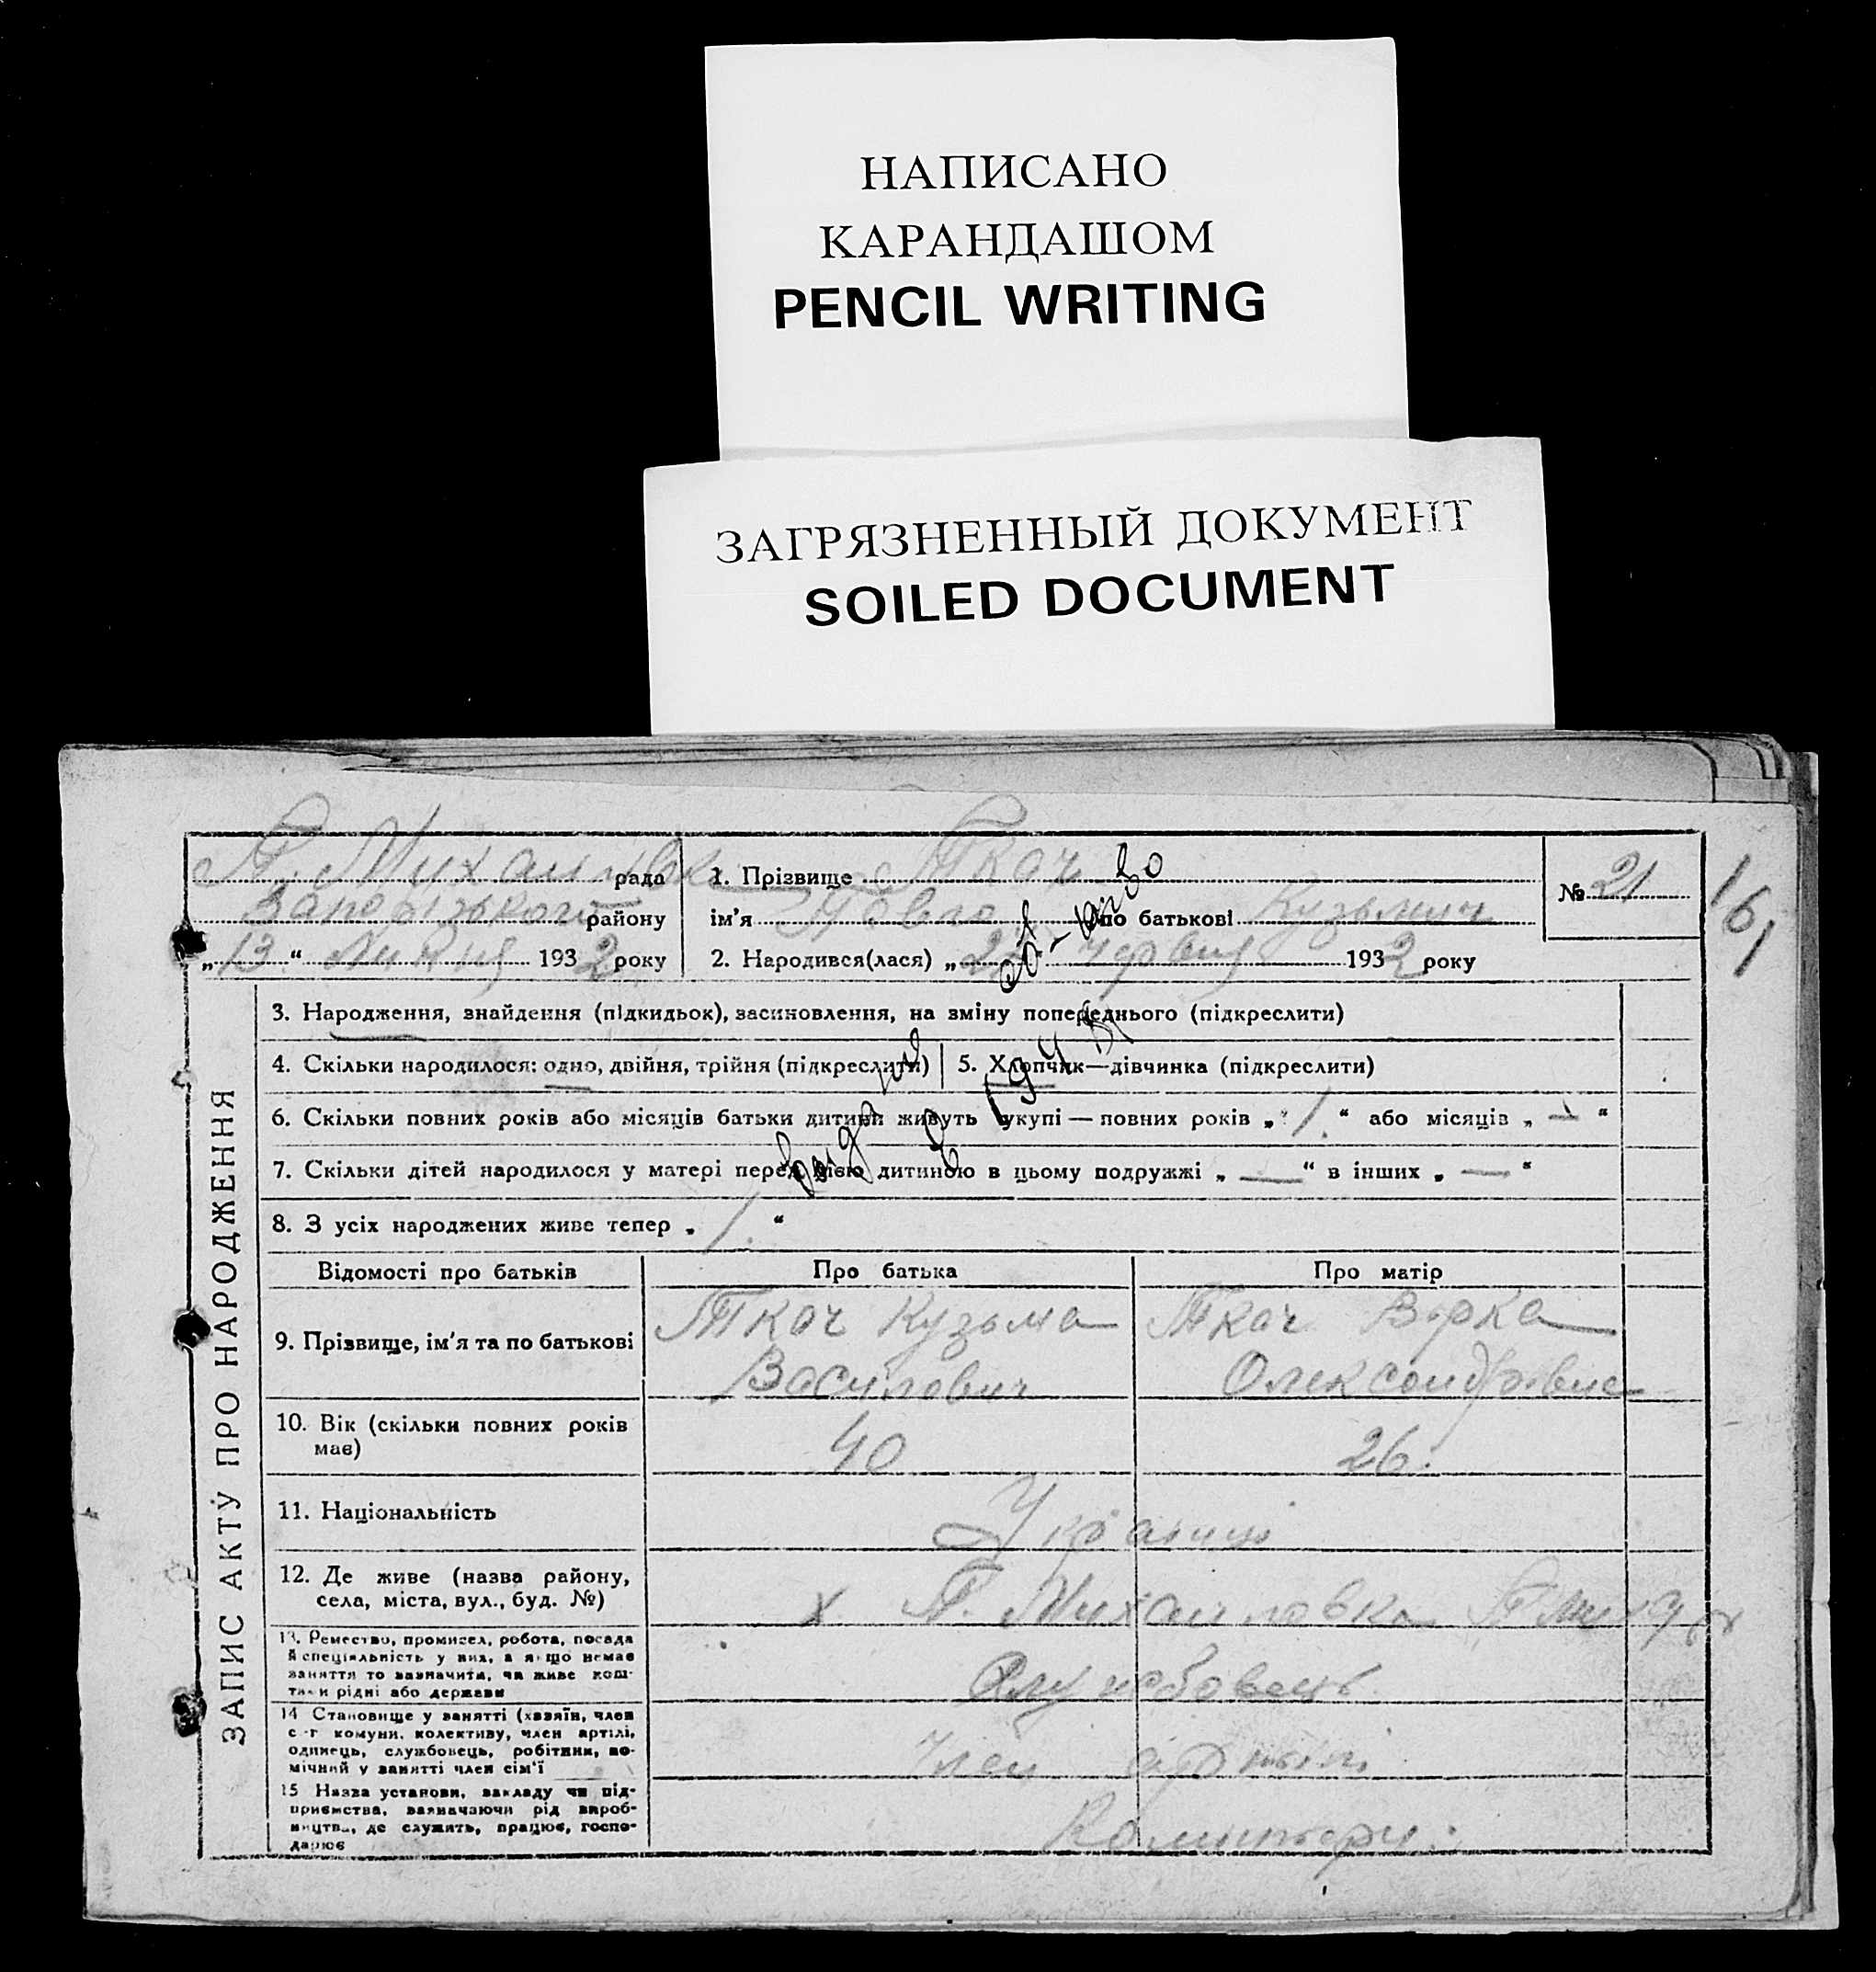 НАПИСАНО
КАРАНДАШОМ
PENCIL WRITING
ЗАГРЯЗНЕННЫЙ ДОКУМЕНТ
SOILED DOCUMENT
рада
району
„13“ Липня 1932 року
1. Прізвище Ткач
ім'я Павло по батькові Кузьмич
2. Народився(лася) „ червня 1932 року
№ 21
161
ЗАПИС АКТУ ПРО НАРОДЖЕННЯ
3. Народження, знайдення (підкидьок), засиновлення, на зміну попереднього (підкреслити)
4. Скільки народилося: одно, двійня, трійня (підкреслити)
5. Хлопчик—дівчинка (підкреслити)
6. Скільки повних років або місяців батьки дитини живуть укупі — повних років „1“ або місяців „—“
7. Скільки дітей народилося у матері перед цією дитиною в цьому подружжі „—“ в інших „—“
8. З усіх народжених живе тепер „1.“
Відомості про батьків
Про батька
Про матір
9. Прізвище, ім'я та по батькові
Ткач Кузьма
Василович
Ткач
Олександровна
10. Вік (скільки повних років
має)
40
26.
11. Національність
Українці
12. Де живе (назва району,
села, міста, вул., буд. №)
х. П. Михайловка
13. Ремество, промисел, робота, посада
й спеціяльність у них, а якщо немає
заняття то зазначити, чи живе кош-
тами рідні або держави
14 Становище у занятті (хазяїн, член
с.-г комуни, колективу, член артілі,
одинець, службовець, робітник, по-
мічний у занятті член сім'ї
Член артілі
15 Назва установи, закладу чи під-
приємства, зазначаючи рід вироб-
ництва, де служить, працює, госпо-
дарює